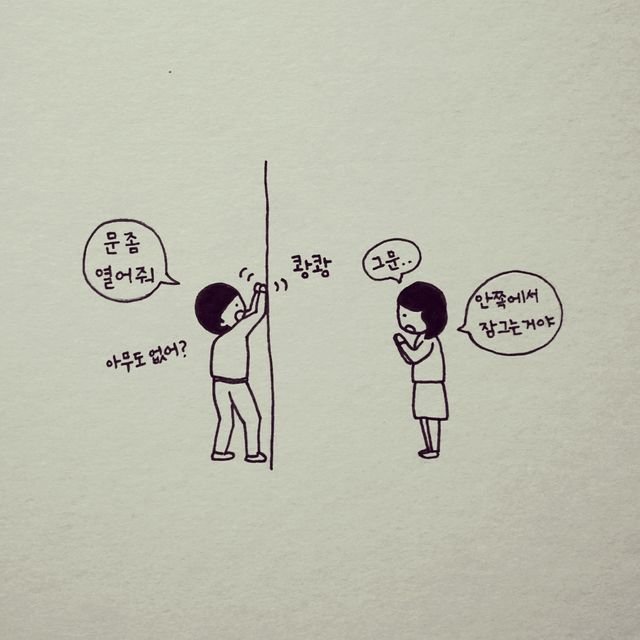 문 좀
열어줘
아무도 없어?
쾅쾅
그문..
안쪽에서
잠그는거야